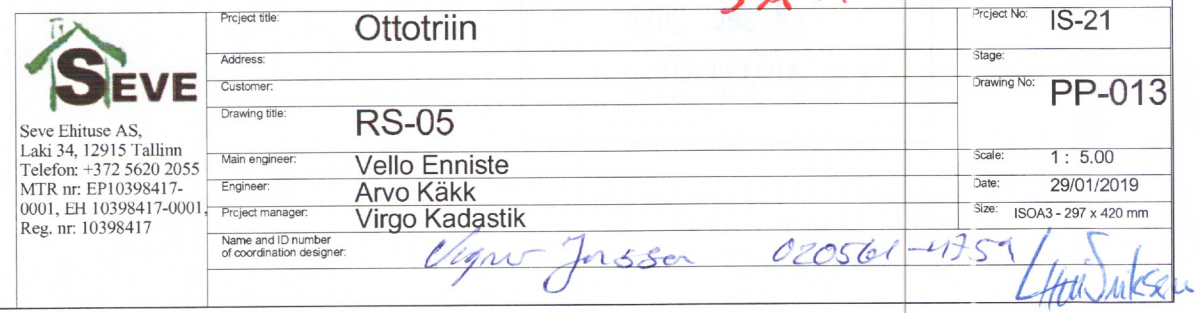 SEVE
Seve Ehituse AS,
Laki 34, 12915 Tallinn
Telefon: +372 5620 2055
MTR nr: EP10398417-
0001, EH 10398417-0001,
Reg. nr: 10398417
Project title: Ottotriin
Address:
Customer:
Drawing title: RS-05
Main engineer: Vello Enniste
Engineer: Arvo Käkk
Project manager: Virgo Kadastik
Name and ID number
of coordination designer: 020561-4759
Project No: IS-21
Stage:
Drawing No: PP-013
Scale: 1 : 5.00
Date: 29/01/2019
Size: ISOA3 - 297 x 420 mm